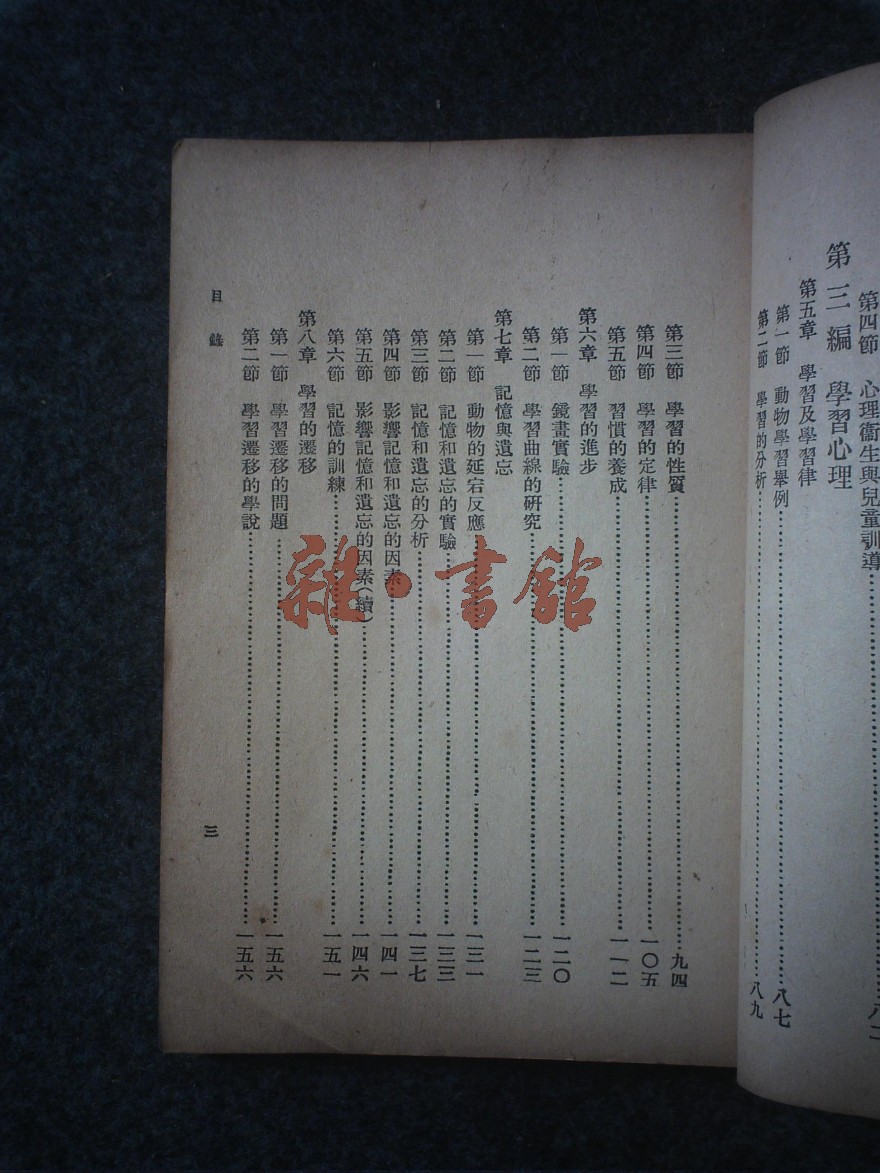 第四節 心理衞生與兒童訓導
第三編 學習心理
第五章 學習及學習律
第一節 動物學習舉例……八七
第二節 學習的分析……八九
第三節 學習的性質……九四
第四節 學習的定律……一〇五
第五節 習慣的養成……一一二
第六章 學習的進步
第一節 鏡畫實驗……一二〇
第二節 學習曲線的研究……一二三
第七章 記憶與遺忘
第一節 動物的延宕反應……一三一
第二節 記憶和遺忘的實驗……一三三
第三節 記憶和遺忘的分析……一三七
第四節 影響記憶和遺忘的因素……一四一
第五節 影響記憶和遺忘的因素(續)……一四六
第六節 記憶的訓練……一五一
第八章 學習的遷移
第一節 學習遷移的問題……一五六
第二節 學習遷移的學說……一五六
目錄
三
雜·書館